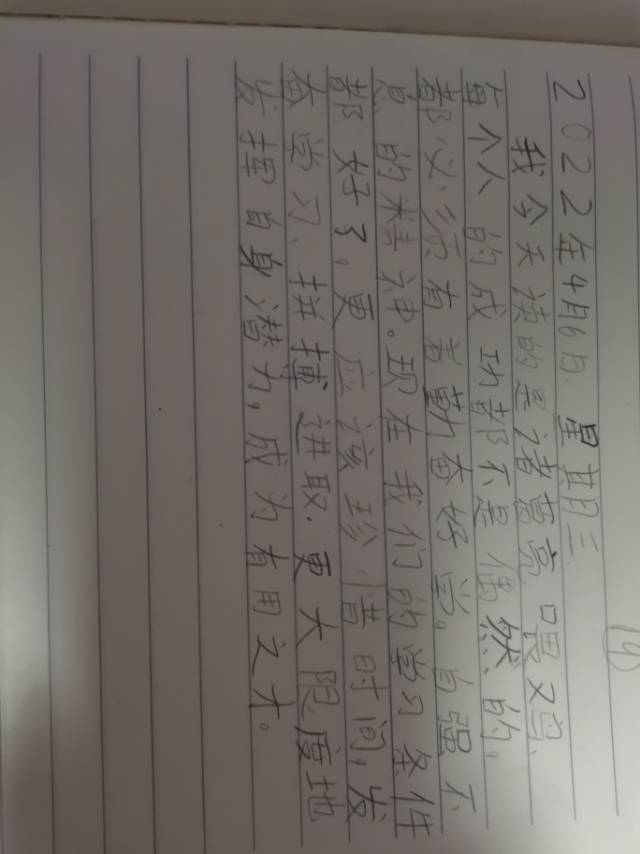 19
2022年4月6日 星期三
我今天读的是诸葛亮喂鸡、
每个人的成功都不是偶然的,
都必须有着勤奋好学。自强不
息的精神。现在我们的学习条件
都好了,更应该珍惜时间,发
奋学习、拼搏进取.更大限度地
发挥自身潜力,成为有用之才。